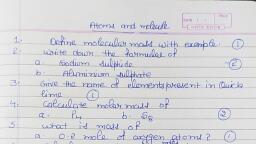 Atoms and molecule
1. Define molecular mass with example. ①
2. Write down the formulas of
a. Sodium sulphide -②
b. Aluminium sulphate
3. Give the name of elements present in Quick
lime ①
4. Calculate molar mass of
a. P4 b. S8 ②
5. What is mass of
a. 0.2 mole of oxygen atoms? ①